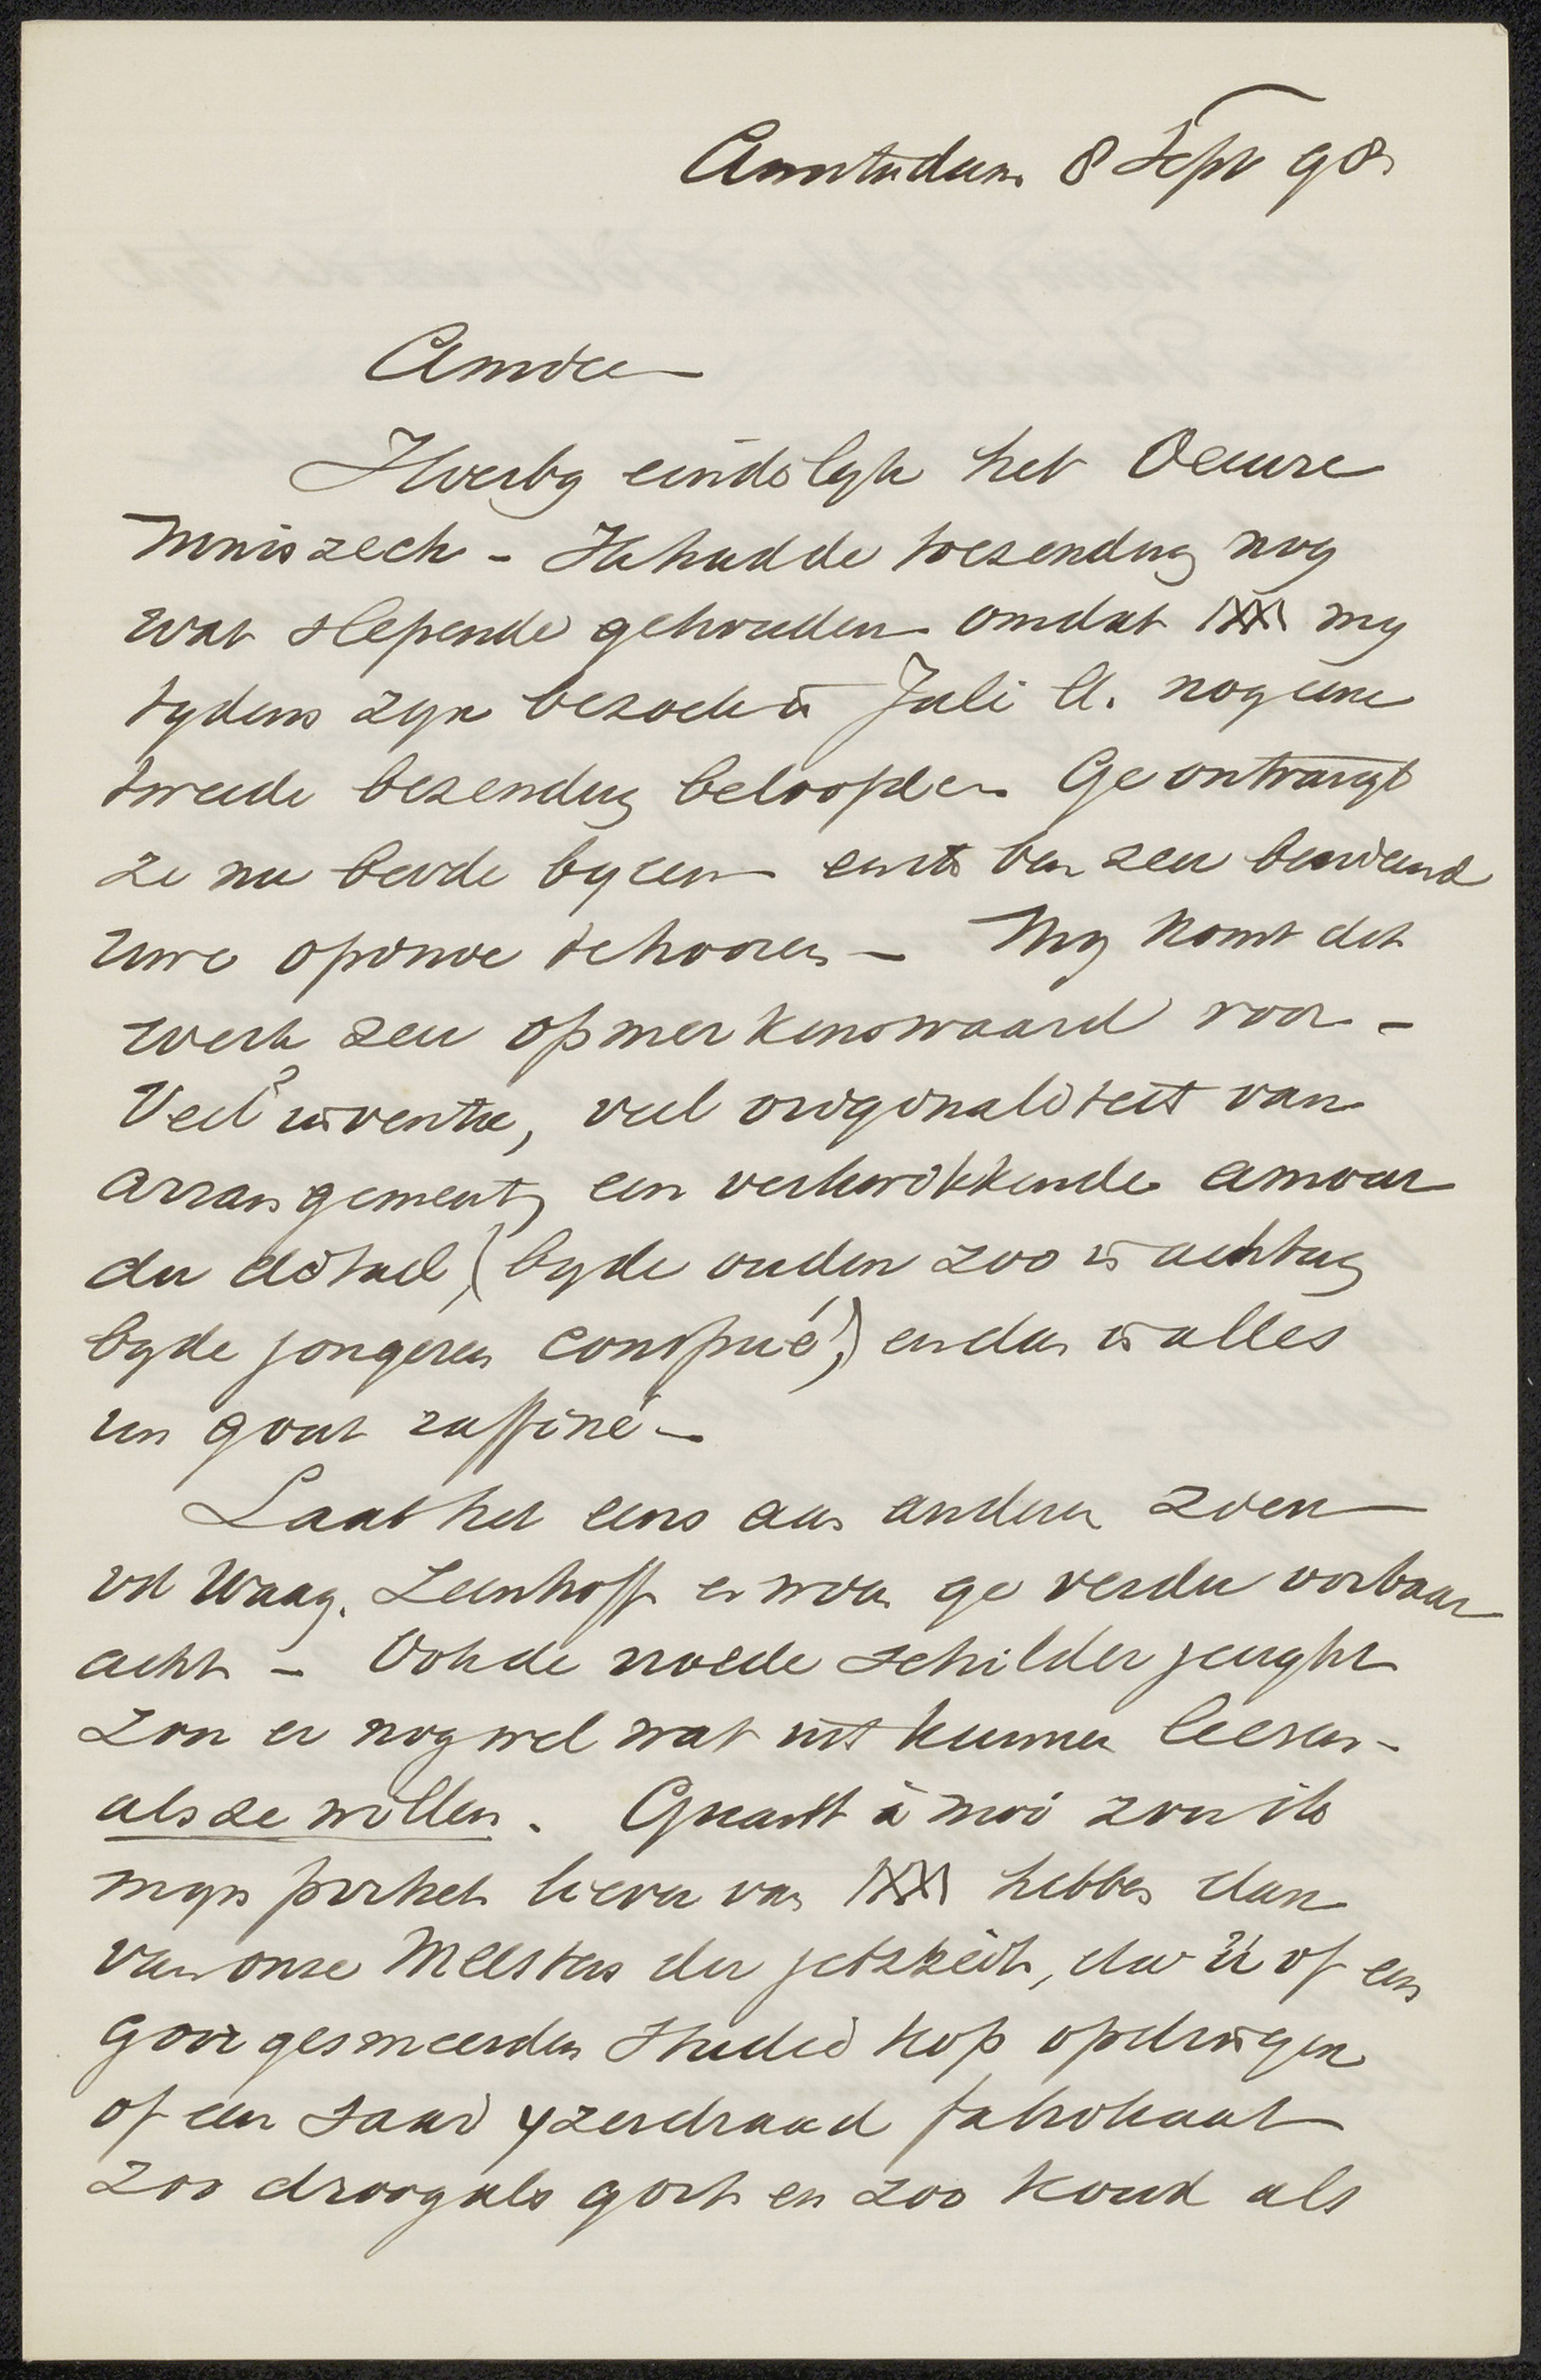 Amsterdam 8 Sept 98
Amice
Hierby eindelyk het Oeuvre
Mniszech - Ik had de toezending nog
wat slepende gehouden omdat my
tydens zyn bezoek in Juli ll. nog eene
tweede bezending beloofde. Ge ontvangt
ze nu beide byeen en ik ben zeer benieuwd
uwe opinie te hooren - My komt dit
werk zeer opmerkenswaard voor -
Veel inventie, veel origineliteit van
arrangement, een verkwikkende amour
du détail, (by de ouden zoo in achting
by de jongeren conspué,) en dan in alles
un gout raffiné -
Laat het eens aan anderen zien
vd Waay. Leenhoff en wien ge verder vatbaar
acht - Ook de woeste schilderjeught
zou er nog wel wat uit kunnen leeren -
als ze willen. Quant à moi zou ik
myn portret liever van hebben dan
van onze Meesters der jetzzeit, die U of een
goor gesmeerden studie kop opdringen
of een saai yzerdraad fabrikaat
zoo droog als gort en zoo koud als